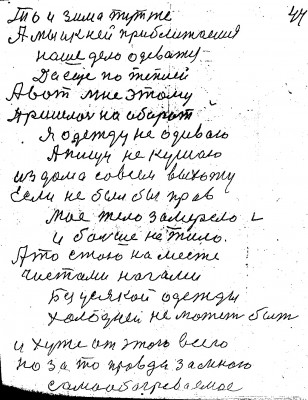 То и зима тутже 44
А мы к ней приближаемся
наше дело одежду
Да еще по теплей
А вот мне этому
Пришлось на оборот
Я одежду не одеваю
А пищу не кушаю
из дома совсем выхожу
Если не был бы прав
мое тело замерзло
и больше не жило.
А то стою на месте
чистыми ногами
Безусякой одежды
Холодней не может быть
и хуже от этого всего
но за то правды за мною
самообогреваемое